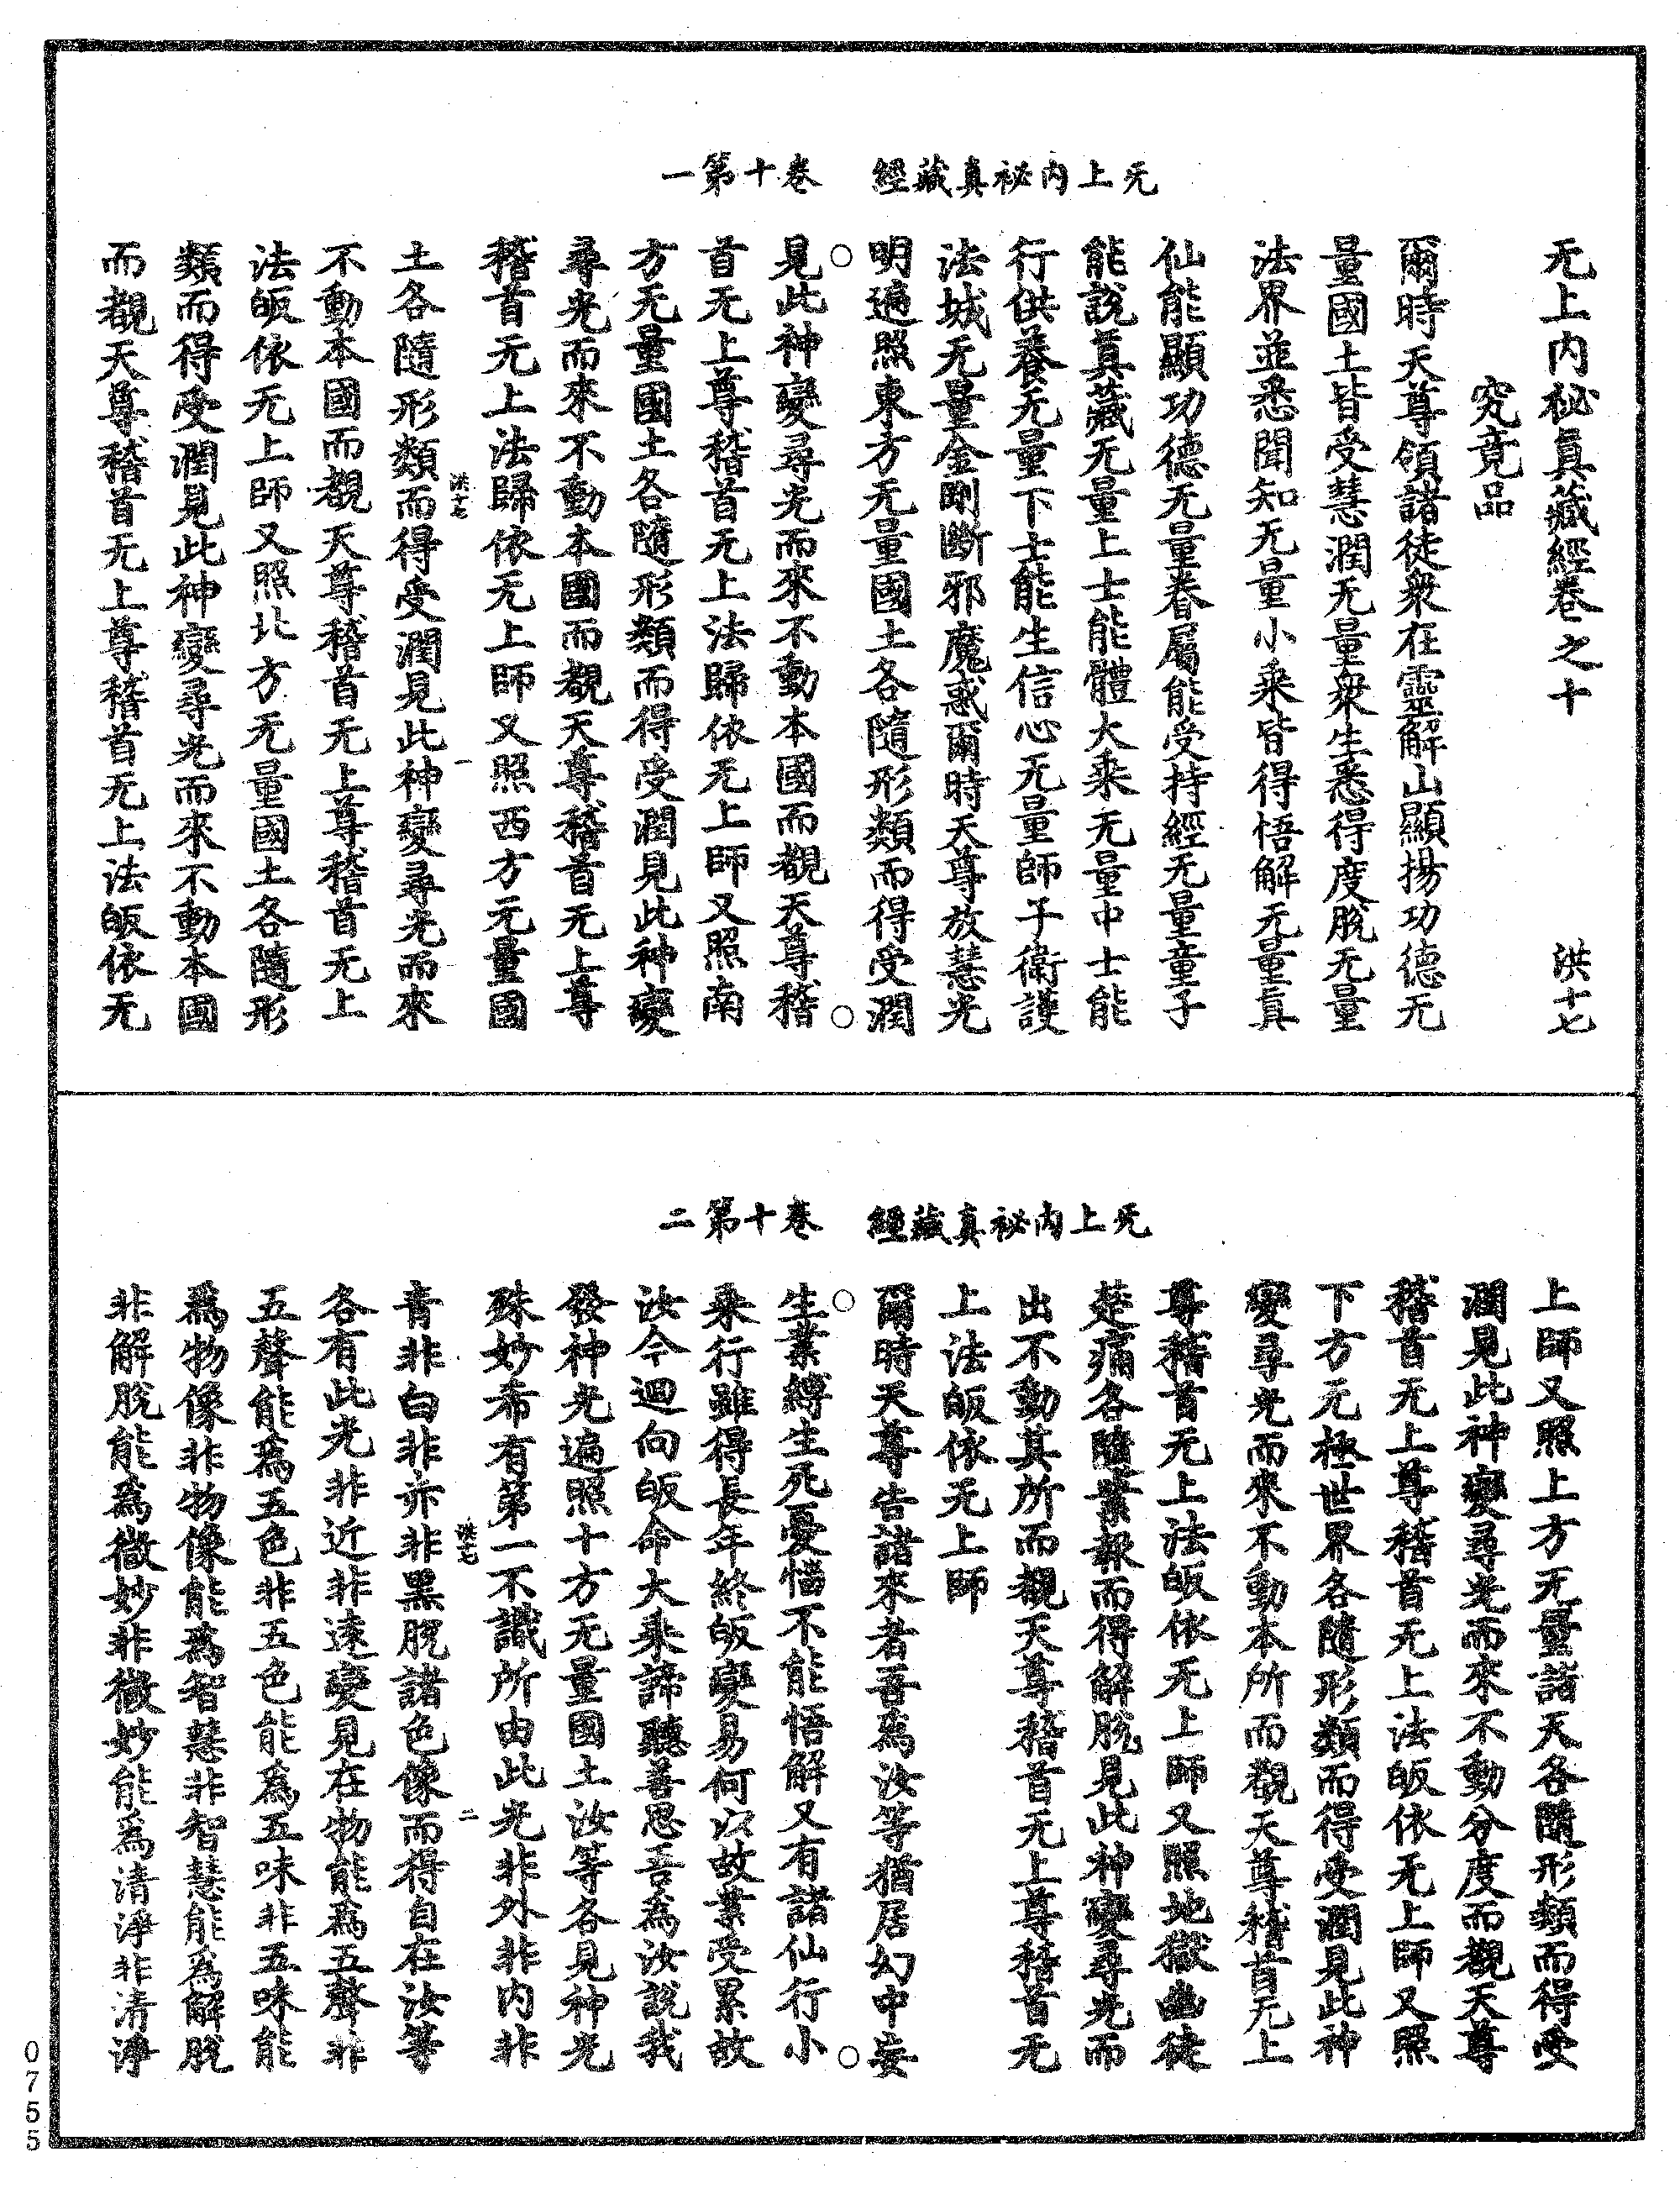 无上內秘真藏經　卷十第一
无上內秘真藏經卷之十　洪十七
究竟品
爾時天尊領諸徒衆在靈解山顯揚功德无
量國土皆受慧潤无量衆生悉得度脫无量
法界並悉聞知无量小乘皆得悟解无量真
仙能顯功德无量眷屬能受持經无量童子
能說真藏无量上士能體大乘无量中士能
行供養无量下士能生信心无量師子衛護
法城无量金剛斷邪魔惑爾時天尊放慧光
明遍照東方无量國土各隨形類而得受潤
見此神變尋光而來不動本國而覩天尊稽
首无上尊稽首无上法歸依无上師又照南
方无量國土各隨形類而得受潤見此神變
尋光而來不動本國而覩天尊稽首无上尊
稽首无上法歸依无上師又照西方无量國
洪十七　一
土各隨形類而得受潤見此神變尋光而來
不動本國而覩天尊稽首无上尊稽首无上
法皈依无上師又照北方无量國土各隨形
類而得受潤見此神變尋光而來不動本國
而覩天尊稽首无上尊稽首无上法皈依无
无上內秘真藏經　卷十第二
上師又照上方无量諸天各隨形類而得受
潤見此神變尋光而來不動分度而覩天尊
稽首无上尊稽首无上法皈依无上師又照
下方无極世界各隨形類而得受潤見此神
變尋光而來不動本所而覩天尊稽首无上
尊稽首无上法皈依无上師又照地獄幽徒
楚痛各隨業報而得解脫見此神變尋光而
出不動其所而覩天尊稽首无上尊稽首无
上法皈依无上師
爾時天尊告諸來者吾為汝等猶居幻中妄
生業縛生死憂惱不能悟解又有諸仙行小
乘行雖得長年終皈變易何以故業受累故
汝今迴向皈命大乘諦聽善思吾為汝說我
發神光遍照十方无量國土汝等各見神光
殊妙希有第一不識所由此光非外非內非
洪十七　二
青非白非赤非黑脫諸色像而得自在汝等
各有此光非近非遠變見在物能為五聲非
五聲能為五色非五色能為五味非五味能
為物像非物像能為智慧非智慧能為解脫
非解脫能為微妙非微妙能為清淨非清淨
0755